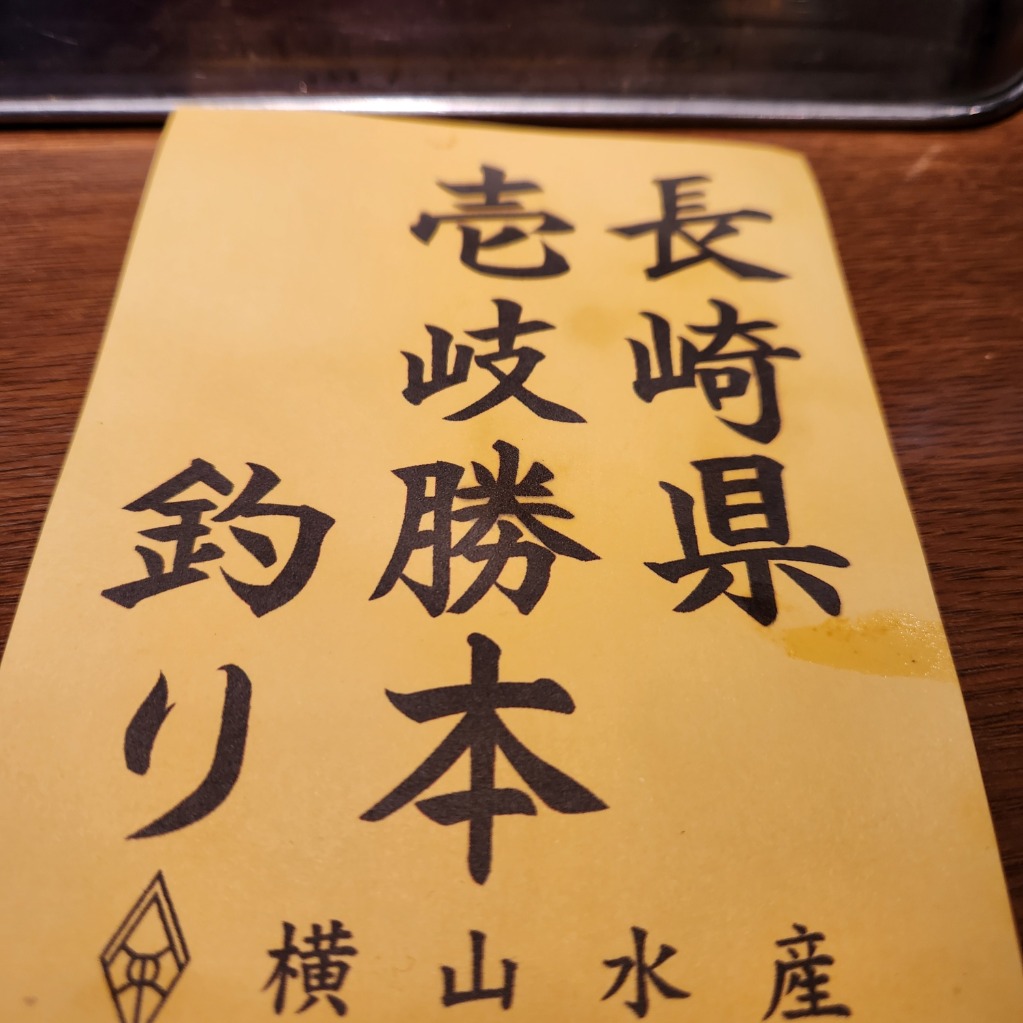 長崎県
壱岐勝本
釣り
横山水産